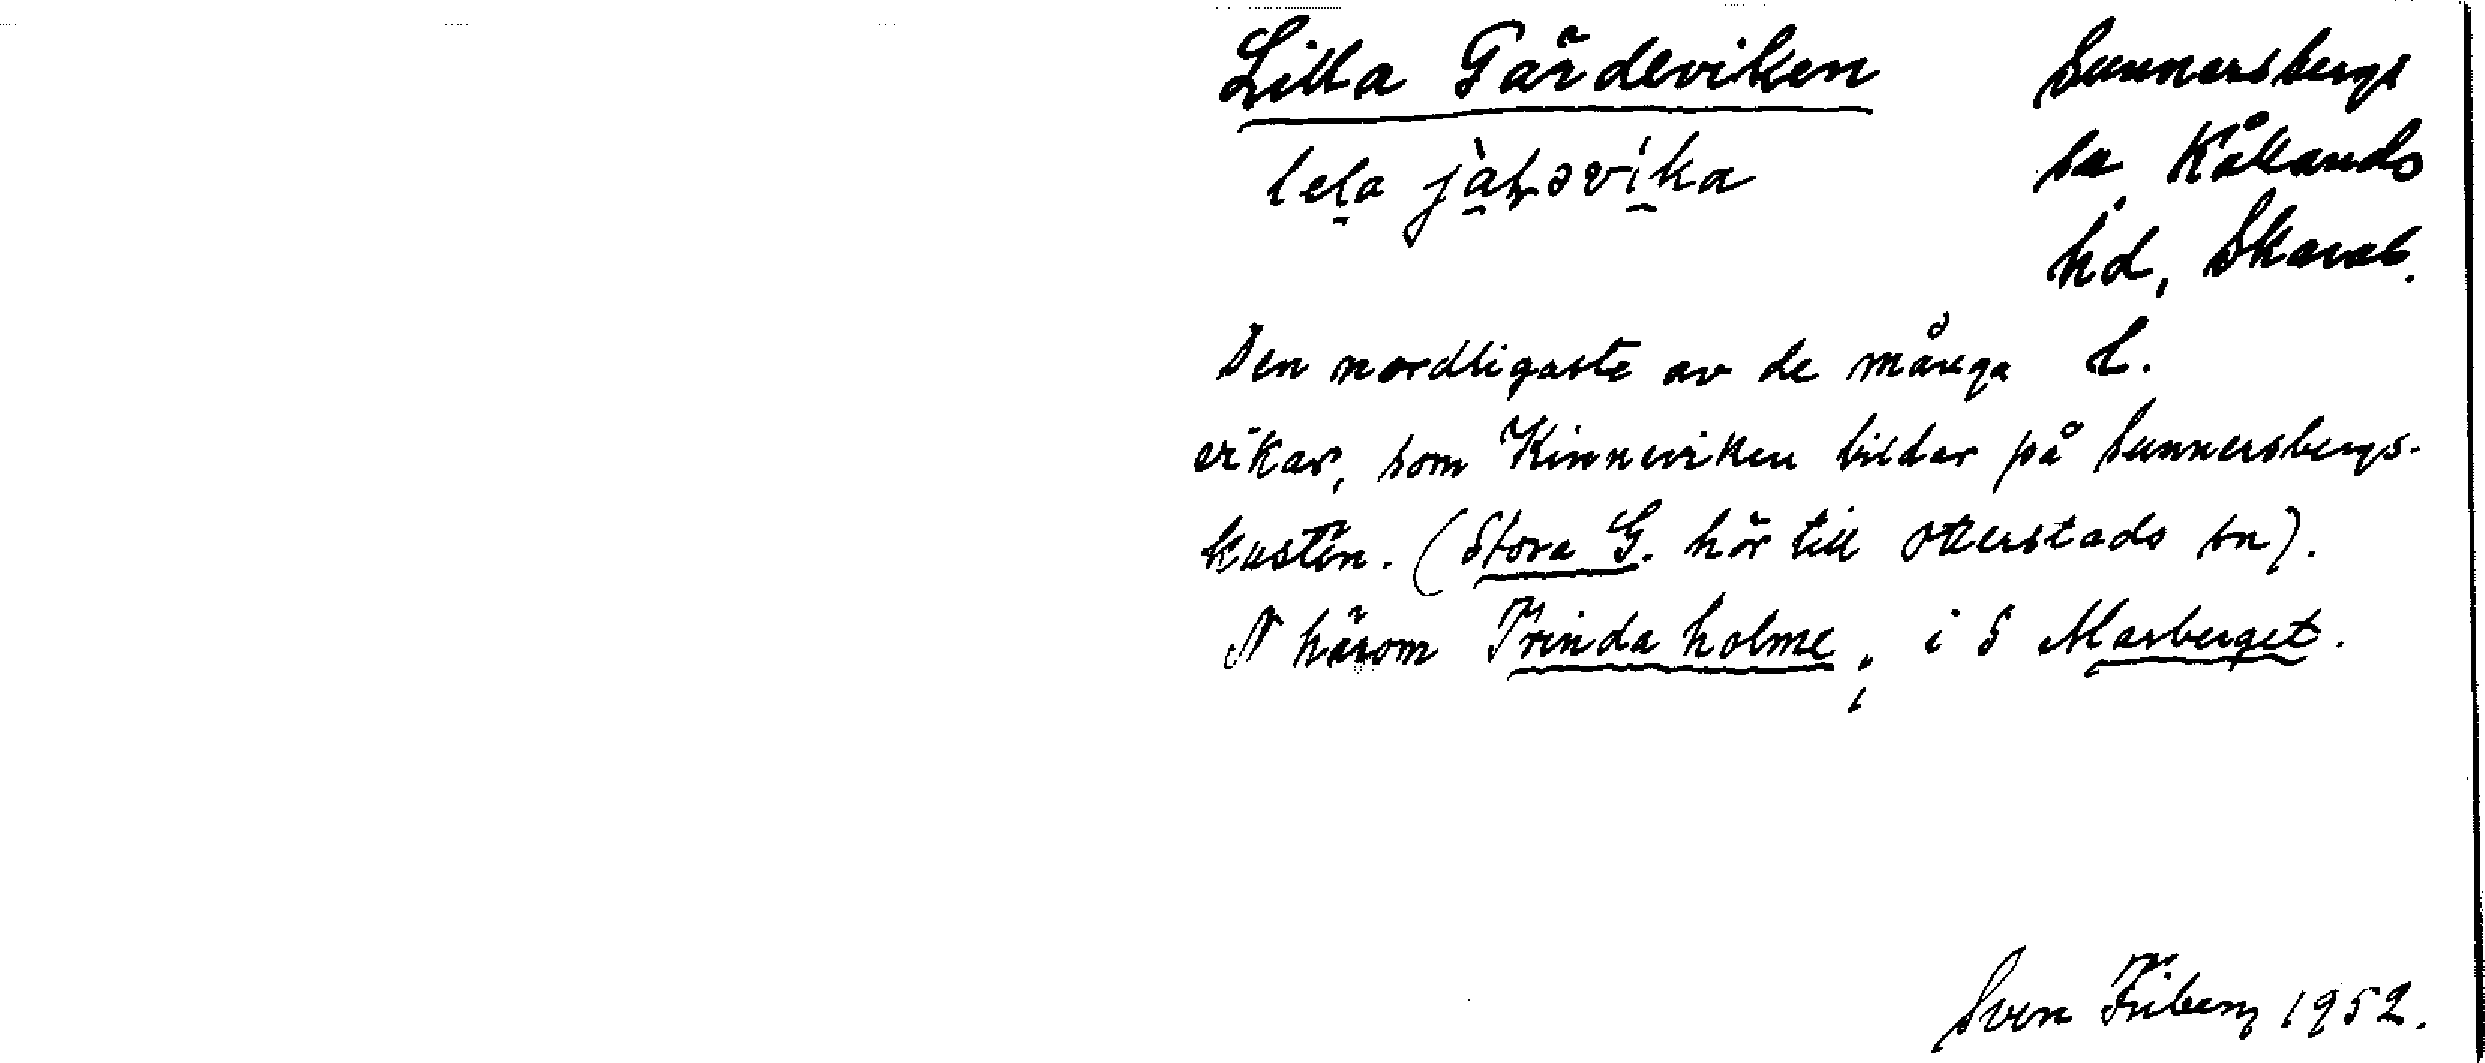 Lilla Gärdeviken Sunnersbergs
sn Kållands
hd, Skarab.
lela
Den nordligaste av de många L.
vikar, som Kinneviken bildar på Sunnersbergs-
kusten. (Stora G. hör till Otterstads sn).
N härom Trinda holme, i S Marberget.
Sven Friberg 1952.